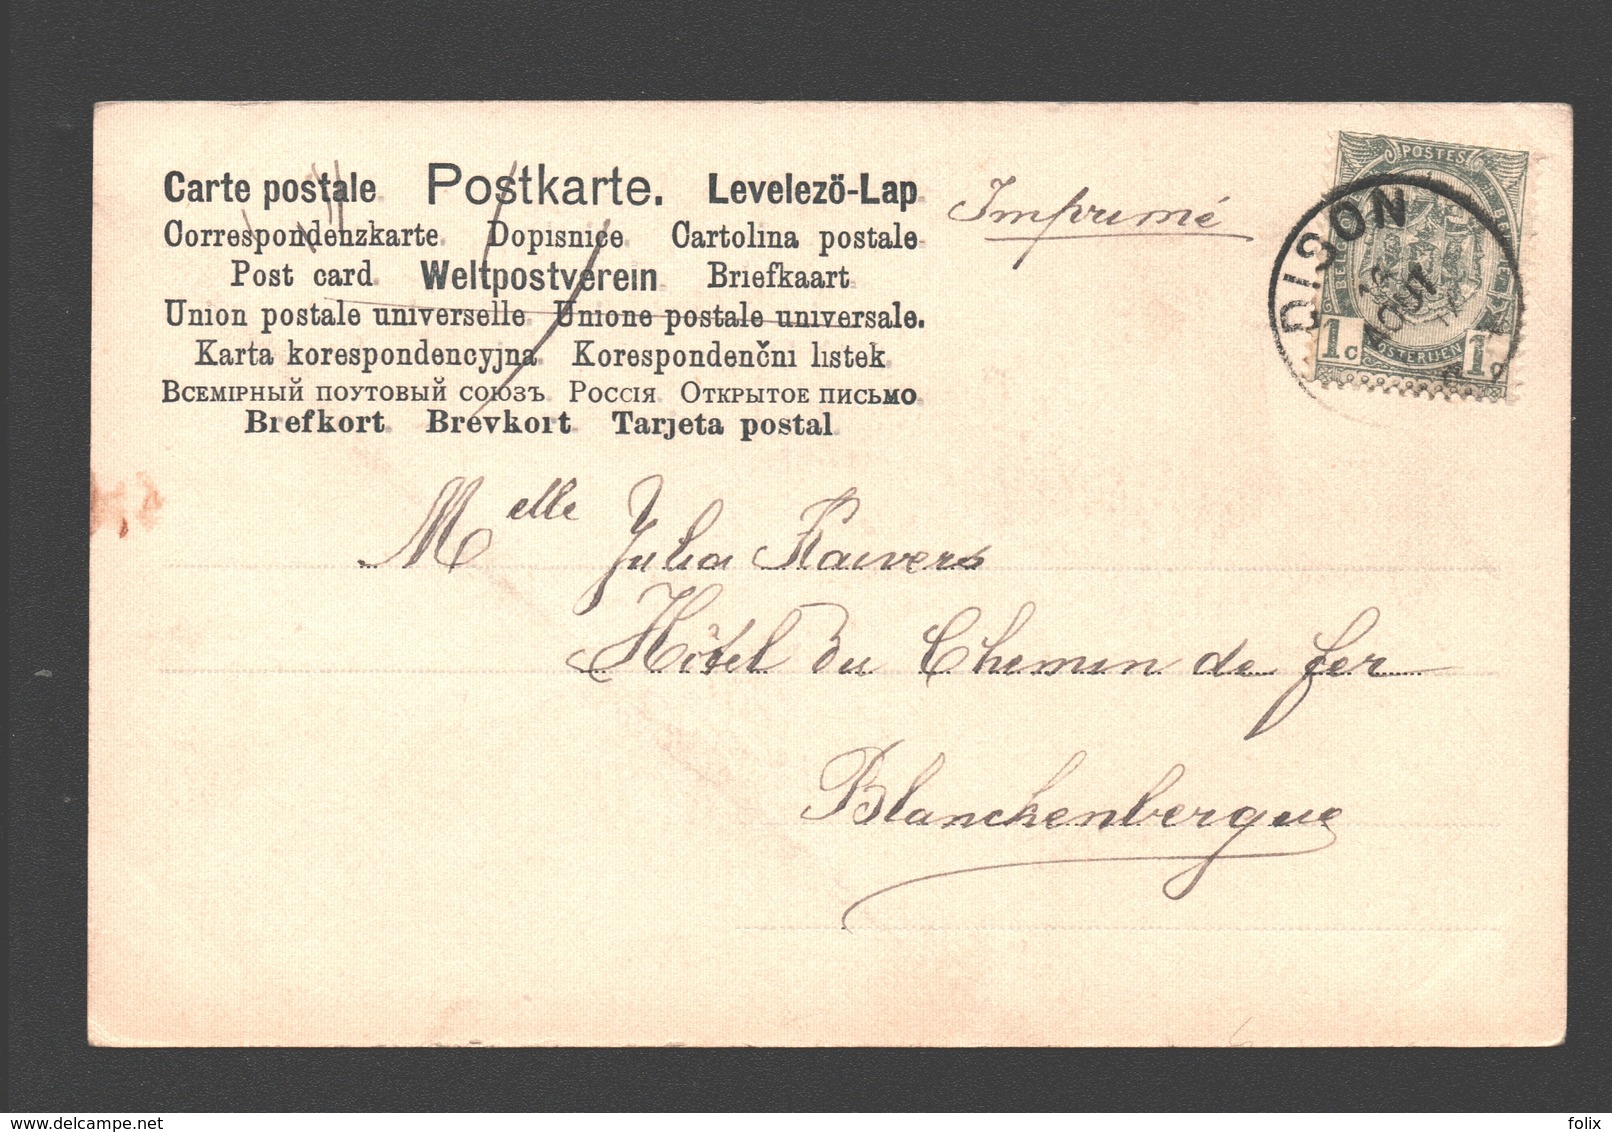 Carte postale. Postkarte. Levelező-Lap.
Correspondenzkarte. Dopisnice. Cartolina postale.
Post card. Weltpostverein. Briefkaart.
Union postale universelle. Unione postale universale.
Karta korespondencyjna. Korespondenčni listek.
Всемірный поутовый союзъ. Россія. Открытое письмо.
Brefkort. Brevkort. Tarjeta postal.
Imprimé
POSTES
DISON
AOUT
1c 1c
POSTERIJEN
Melle Julia
Hôtel du Chemin de fer
Blanckenbergue
felix